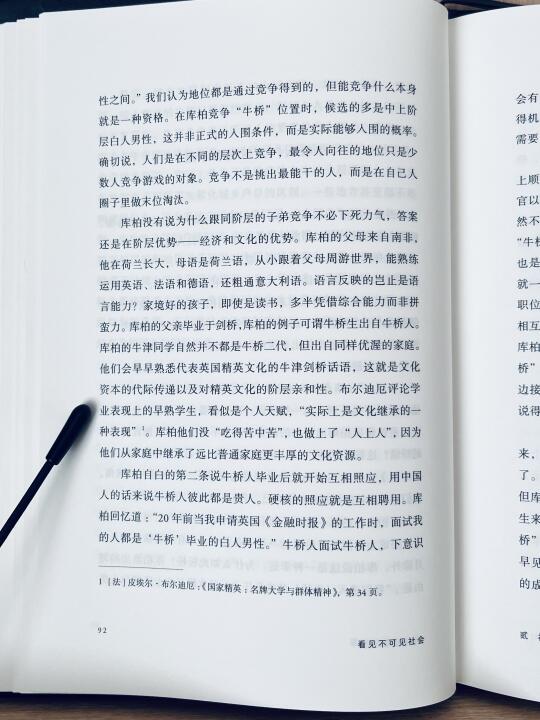 性之间。”我们认为地位都是通过竞争得到的，但能竞争什么本身
就是一种资格。在库柏竞争“牛桥”位置时，候选的多是中上阶
层白人男性，这并非正式的入围条件，而是实际能够入围的概率。
确切说，人们是在不同的层次上竞争，最令人向往的地位只是少
数人竞争游戏的对象。竞争不是挑出最能干的人，而是在自己人
圈子里做末位淘汰。
库柏没有说为什么跟同阶层的子弟竞争不必下死力气，答案
还是在阶层优势——经济和文化的优势。库柏的父母来自南非，
他在荷兰长大，母语是荷兰语，从小跟着父母周游世界，能熟练
运用英语、法语和德语，还粗通意大利语。语言反映的岂止是语
言能力？家境好的孩子，即使是读书，多半凭借综合能力而非拼
蛮力。库柏的父亲毕业于剑桥，库柏的例子可谓牛桥生出自牛桥人。
库柏的牛津同学自然并不都是牛桥二代，但出自同样优渥的家庭。
他们会早早熟悉代表英国精英文化的牛津剑桥话语，这就是文化
资本的代际传递以及对精英文化的阶层亲和性。布尔迪厄评论学
业表现上的早熟学生，看似是个人天赋，“实际上是文化继承的一
种表现”1。库柏他们没“吃得苦中苦”，也做上了“人上人”，因为
他们从家庭中继承了远比普通家庭更丰厚的文化资源。
库柏自白的第二条说牛桥人毕业后就开始互相照应，用中国
人的话来说牛桥人彼此都是贵人。硬核的照应就是互相聘用。库
柏回忆道：“20年前当我申请英国《金融时报》的工作时，面试我
的人都是‘牛桥’毕业的白人男性。”牛桥人面试牛桥人，下意识
1 [法]皮埃尔·布尔迪厄：《国家精英：名牌大学与群体精神》，第34页。
92
看见不可见社会
会有
得机
需要
上顺
官以
然不
“牛
也是
就一
职位
相互
库柏
桥”
边接
说得
来，
了。
但库
生来
桥”
早见
的成
贰